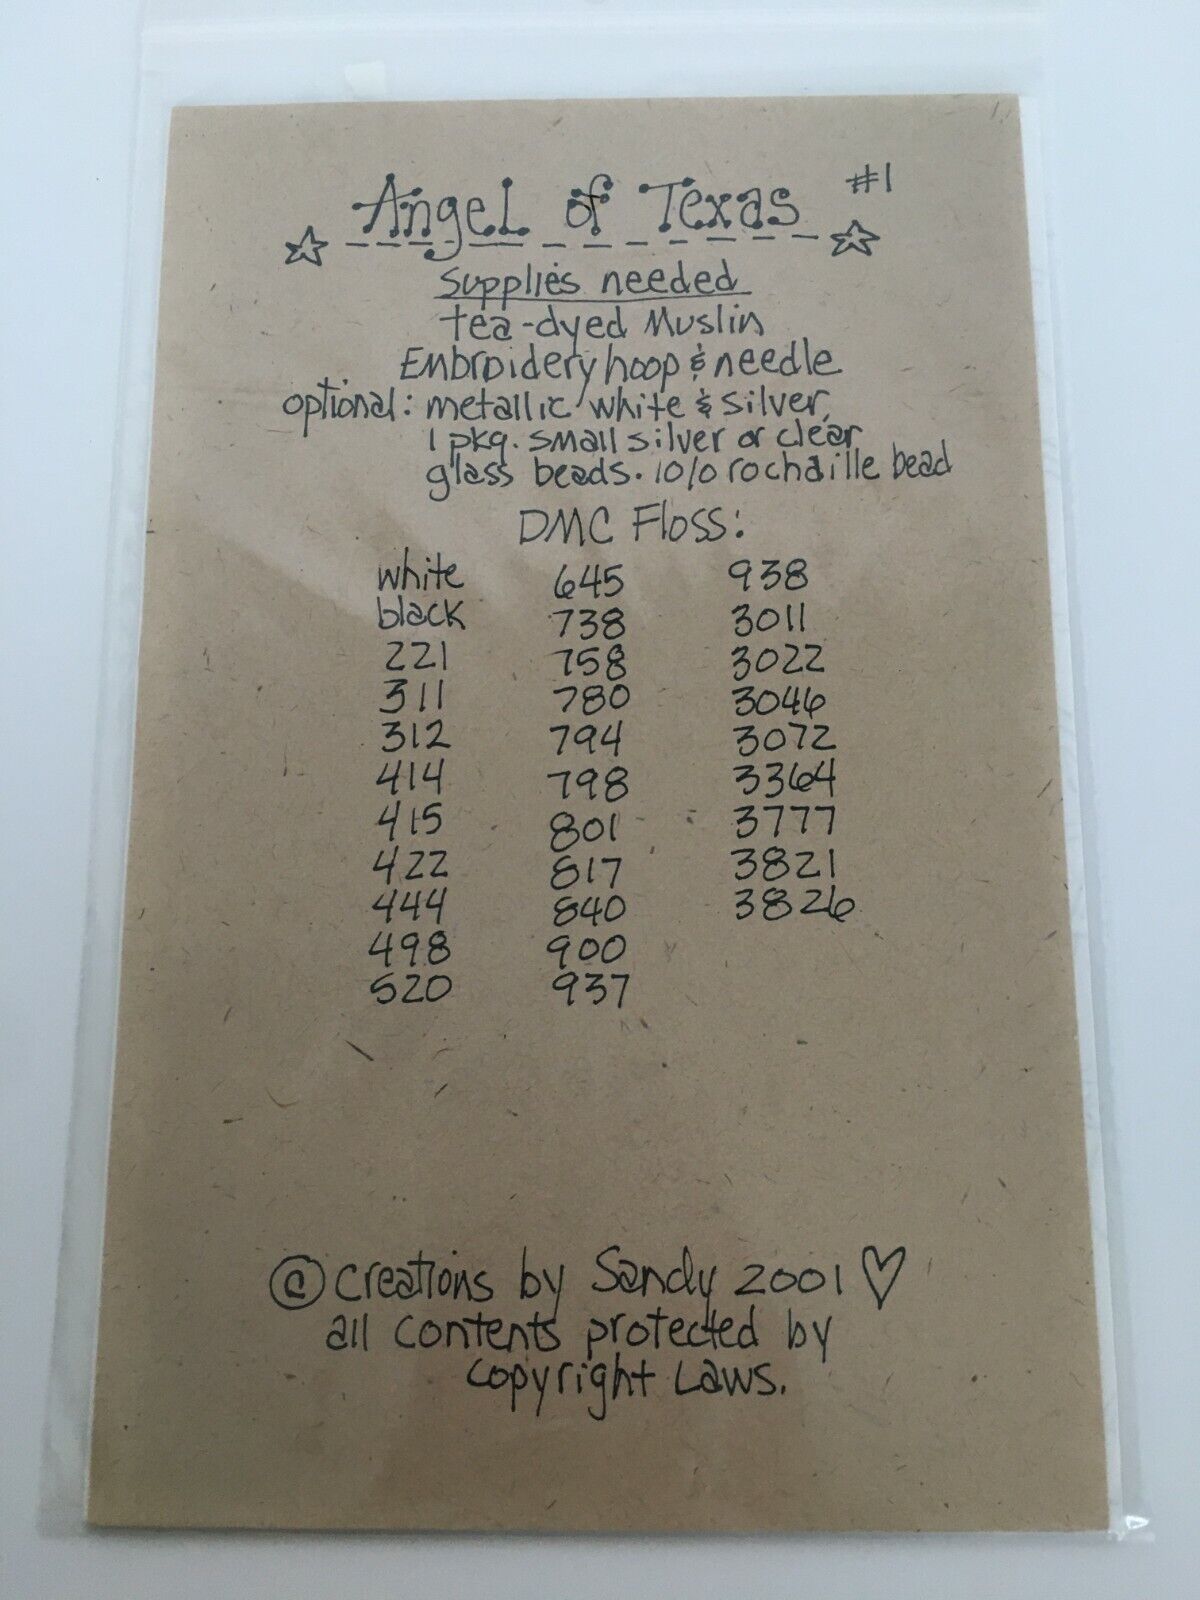 Angel of Texas #1
Supplies needed
tea-dyed Muslin
Embroidery hoop & needle
optional: metallic white & silver,
1 pkg. small silver or clear
glass beads. 10/0 rochaille bead
DMC Floss:
white 645 938
black 738 3011
221 758 3022
311 780 3046
312 794 3072
414 798 3364
415 801 3777
422 817 3821
444 840 3826
498 900
520 937
© creations by Sandy 2001 ♡
all contents protected by
copyright Laws.